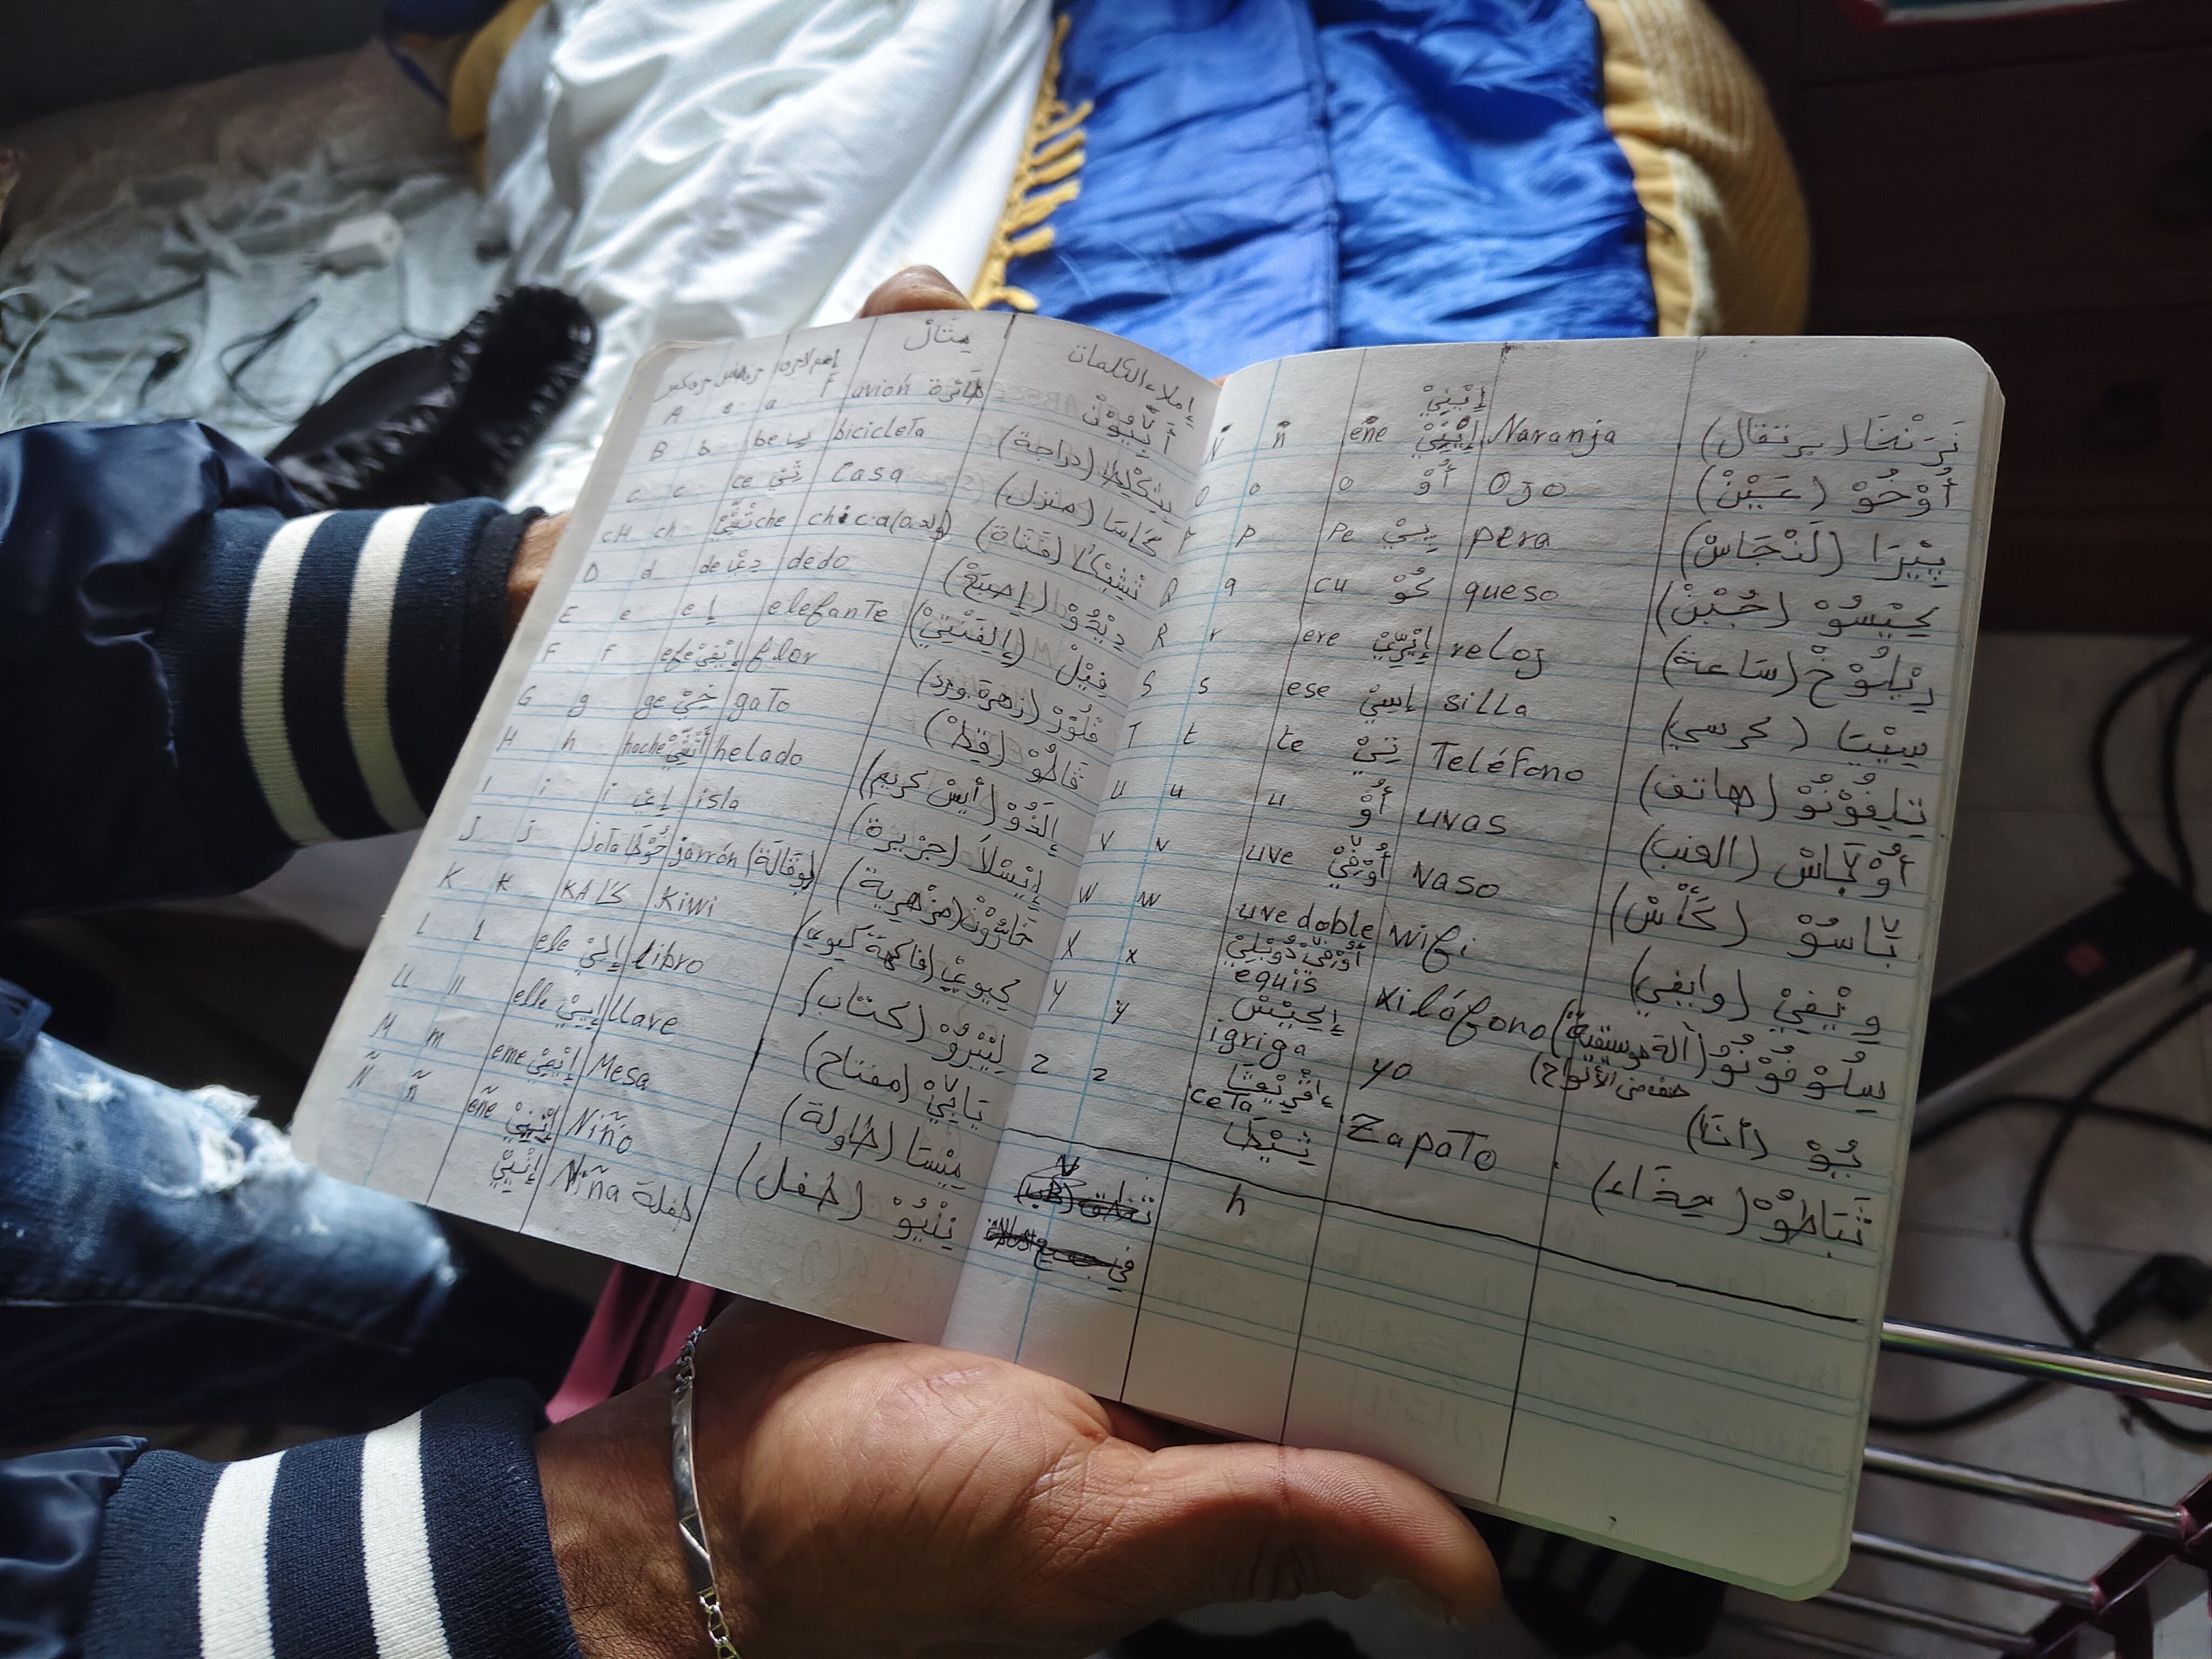 مِثَالْ إملاء الكلمات
A a a أ avión طَائرة أَبْيُوْنْ
B b be بي bicicleta (دراجة)
c c ce ثيْ casa كَاسَا (منزل)
cH ch che chica تْشِيْكَا (فَتَاة)
D d de دي dedo دِيْدُوْ (إصبَعْ)
E e e إ elefanTe فِيْلْ (إِلِفَنْتِيْ)
F f efe إِيْفِيْ flor فْلُوْرْ (زهرة.ورد)
G g ge خِيْ gaTo غَاطُوْ (قِطْ)
H h hache helado إِلَدُوْ (أَيسْ كريم)
I i i إي isla إِيْسْلاَ (جزيرة)
J j joTa خُوْطَا jarrón خَارُّوْنْ (مزْهرية)
K k KA كَا Kiwi كيويْ (فاكهَة كيوي)
L l ele إِليْ libro لِيْبْرُوْ (كتاب)
LL ll elle llave يَابِيْ (مفتاح)
M m eme إِيْمِيْ Mesa مِيْسَا (طاولة)
Ñ ñ eñe إِنْيِيْ Niño نِنْيُوْ (طفل)
إِنْيِيْ Niña طفلة
إِنْيِيْ
Ñ ñ eñe Naranja نَرَنْخَا (برتقال)
O o o أُوْ OJO أُوْخُوْ (عَيْنْ)
P p Pe بِيْ pera بِيْرَا (لَنْجَاسْ)
Q q cu كُوْ queso كِيْسُوْ (جُبْنْ)
R r ere إِيْرِيْ reloj رِيْلُوْخْ (سَاعة)
S s ese إِسِيْ silla سِيْيَا (كرسي)
T t te تِيْ Teléfono تِلِيفُوْنُوْ (هاتف)
U u u أُوْ uvas أُوْبَاسْ (العنب)
V v uve أُوْفِيْ Vaso بَاسُوْ (كَأْسْ)
W w uve doble wifi وِيْفِيْ (وايفي)
أُوْفِيْ دُوْبْلِيْ
X x equis xilófono سِيْلُوْفُوْنُوْ (آلة موسيقية
إِكِيْسْ صف من الألواح)
Y y igriga yo يُوْ (أَنَا)
Z z ceTa ثِيْطَا ZapaTo ثَبَاطُوْ (حِذَاء)
h